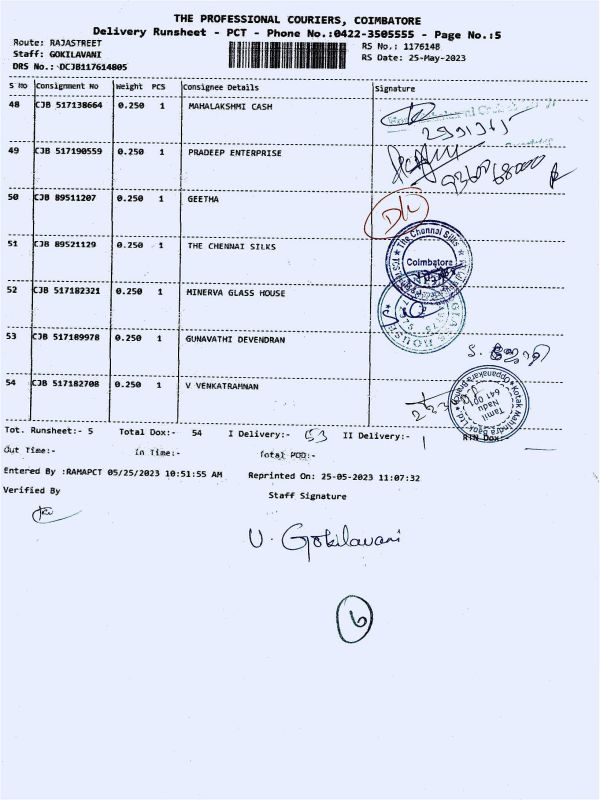 THE PROFESSIONAL COURIERS, COIMBATORE
Delivery Runsheet - PCT - Phone No.:0422-3505555 - Page No.:5
Route: RAJASTREET RS No.: 1176148
Staff: GOKILAVANI RS Date: 25-May-2023
DRS No.: DCJB117614805
S No Consignment No Weight PCS Consignee Details Signature
48 CJB 517138664 0.250 1 MAHALAKSHMI CASH
49 CJB 517190559 0.250 1 PRADEEP ENTERPRISE
50 CJB 89511207 0.250 1 GEETHA
51 CJB 89521129 0.250 1 THE CHENNAI SILKS
The Chennai Silks
Coimbatore
52 CJB 517182321 0.250 1 MINERVA GLASS HOUSE
GLASS HOUSE
53 CJB 517189978 0.250 1 GUNAVATHI DEVENDRAN
54 CJB 517182708 0.250 1 V VENKATRAMNAN
Kotak Mahindra Bank Ltd.
Oppanakara Street
641 001
Tamil
Nadu
Tot. Runsheet:- 5 Total Dox:- 54 I Delivery:- 53 II Delivery:- 1 RTN Dox
Out Time:- in Time:- Total POD:-
Entered By :RAMAPCT 05/25/2023 10:51:55 AM Reprinted On: 25-05-2023 11:07:32
Verified By Staff Signature
V. Gokilavani
6